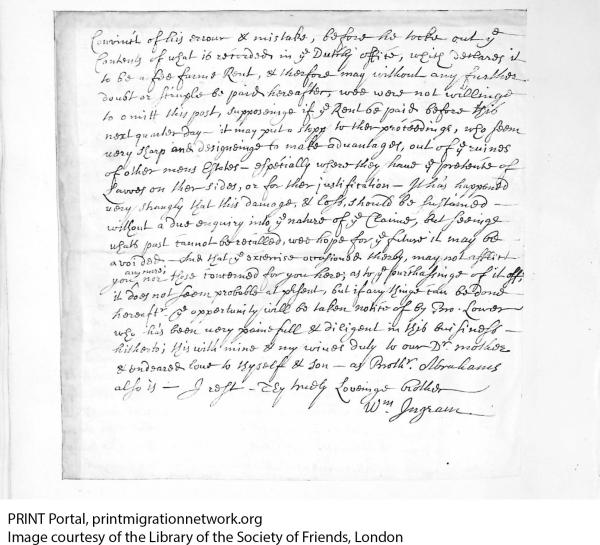 Convinc't of his errour & mistake, before he tooke out ye
Contents of what is recorded in ye Dutchy office, which declares it
to be a fee farme Rent, & therfore may without any further
doubt or scruple be paid hereafter, wee were not willinge
to omitt this post, supposeinge if ye Rent be paid before this
next quarter day - it may put a stopp to ther proceedings, who seem
very sharp and designeinge to make advantages, out of ye ruines
of other mens Estates - especially where they have ye pretente of
Lawes on ther sides, or for ther justification - It has happened
very strangly that this damage, & loss, should be sustained -
without a due enquiry into ye nature of ye Claime, but seeinge
whats past cannot be recalled, wee hope for ye future it may be
avoided - And that ye exercise occasioned therby, may not afflict
any more
you nor those concerned for you here; as to ye purchasinge of it off,
it does not seem probable at present, but if any thinge can be done
hereaftr. ye opportunity will be taken notice of by Bro. Lower
who has been very painefull & diligent in this buisiness -
hitherto; this with mine & my wives duty to our Dr. mother
& endeared love to thyselfe & son - as Brothr. Abrahams
also is - I rest - Thy truely Loveinge brother
Wm Ingram
PRINT Portal, printmigrationnetwork.org
Image courtesy of the Library of the Society of Friends, London